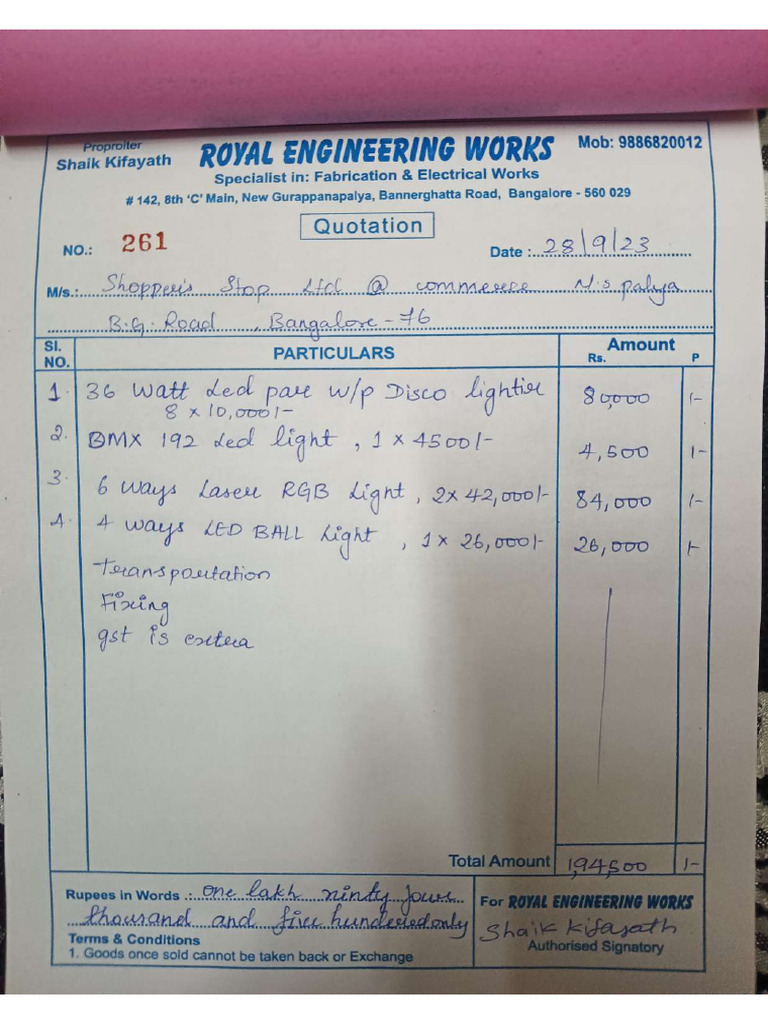 Proproiter
Shaik Kifayath
ROYAL ENGINEERING WORKS
Mob: 9886820012
Specialist in: Fabrication & Electrical Works
# 142, 8th 'C' Main, New Gurappanapalya, Bannerghatta Road, Bangalore - 560 029
Quotation
NO.: 261
Date : 28/9/23
M/s.: Shopper's Stop Ltd @ commerce N.s palya
B.G. Road , Bangalore - 76
Sl. NO. PARTICULARS Amount Rs. P
1. 36 Watt Led par w/p Disco lightier 80,000 /-
8 x 10,000/-
2. DMX 192 Led light , 1 x 4500/- 4,500 /-
3. 6 ways Laser RGB Light , 2x 42,000/- 84,000 /-
4. 4 ways LED BALL Light , 1 x 26,000/- 26,000 /-
Transportation
Fixing
gst is extra
Total Amount 1,94,500 /-
Rupees in Words .: one lakh ninty four
thousand and five hundered only
For ROYAL ENGINEERING WORKS
Shaik Kifayath
Authorised Signatory
Terms & Conditions
1. Goods once sold cannot be taken back or Exchange